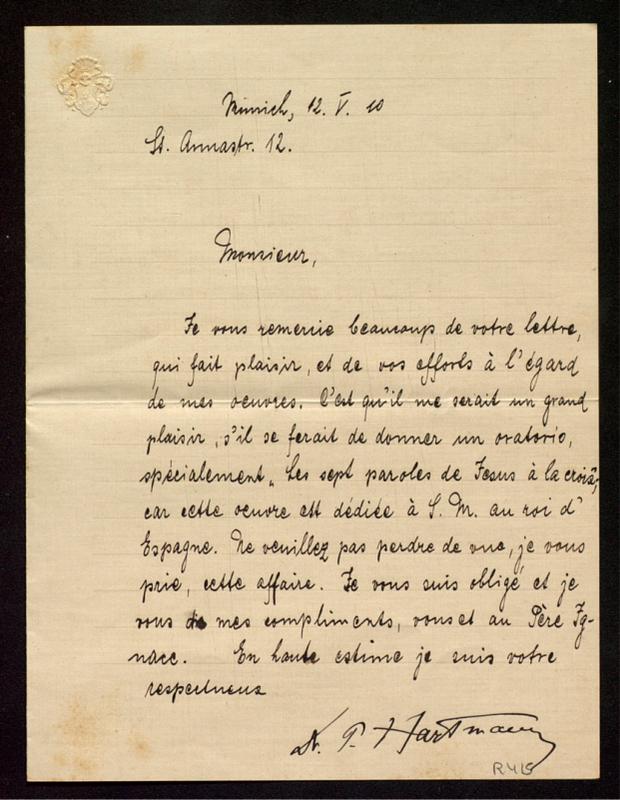 Munich, 12. V. 10
St. Annastr. 12.
Monsieur,
Je vous remercie beaucoup de votre lettre,
qui fait plaisir, et de vos efforts à l'égard
de mes oeuvres. C'est qu'il me serait un grand
plaisir, s'il se ferait de donner un oratorio,
spécialement „Les sept paroles de Jesus à la croix",
car cette oeuvre est dédiée à S. M. au roi d'
Espagne. Ne veuillez pas perdre de vue, je vous
prie, cette affaire. Je vous suis obligé et je
vous mes compliments, vous et au Père Ig-
nace. En haute estime je suis votre
respectueux
P. Hartmann
R415